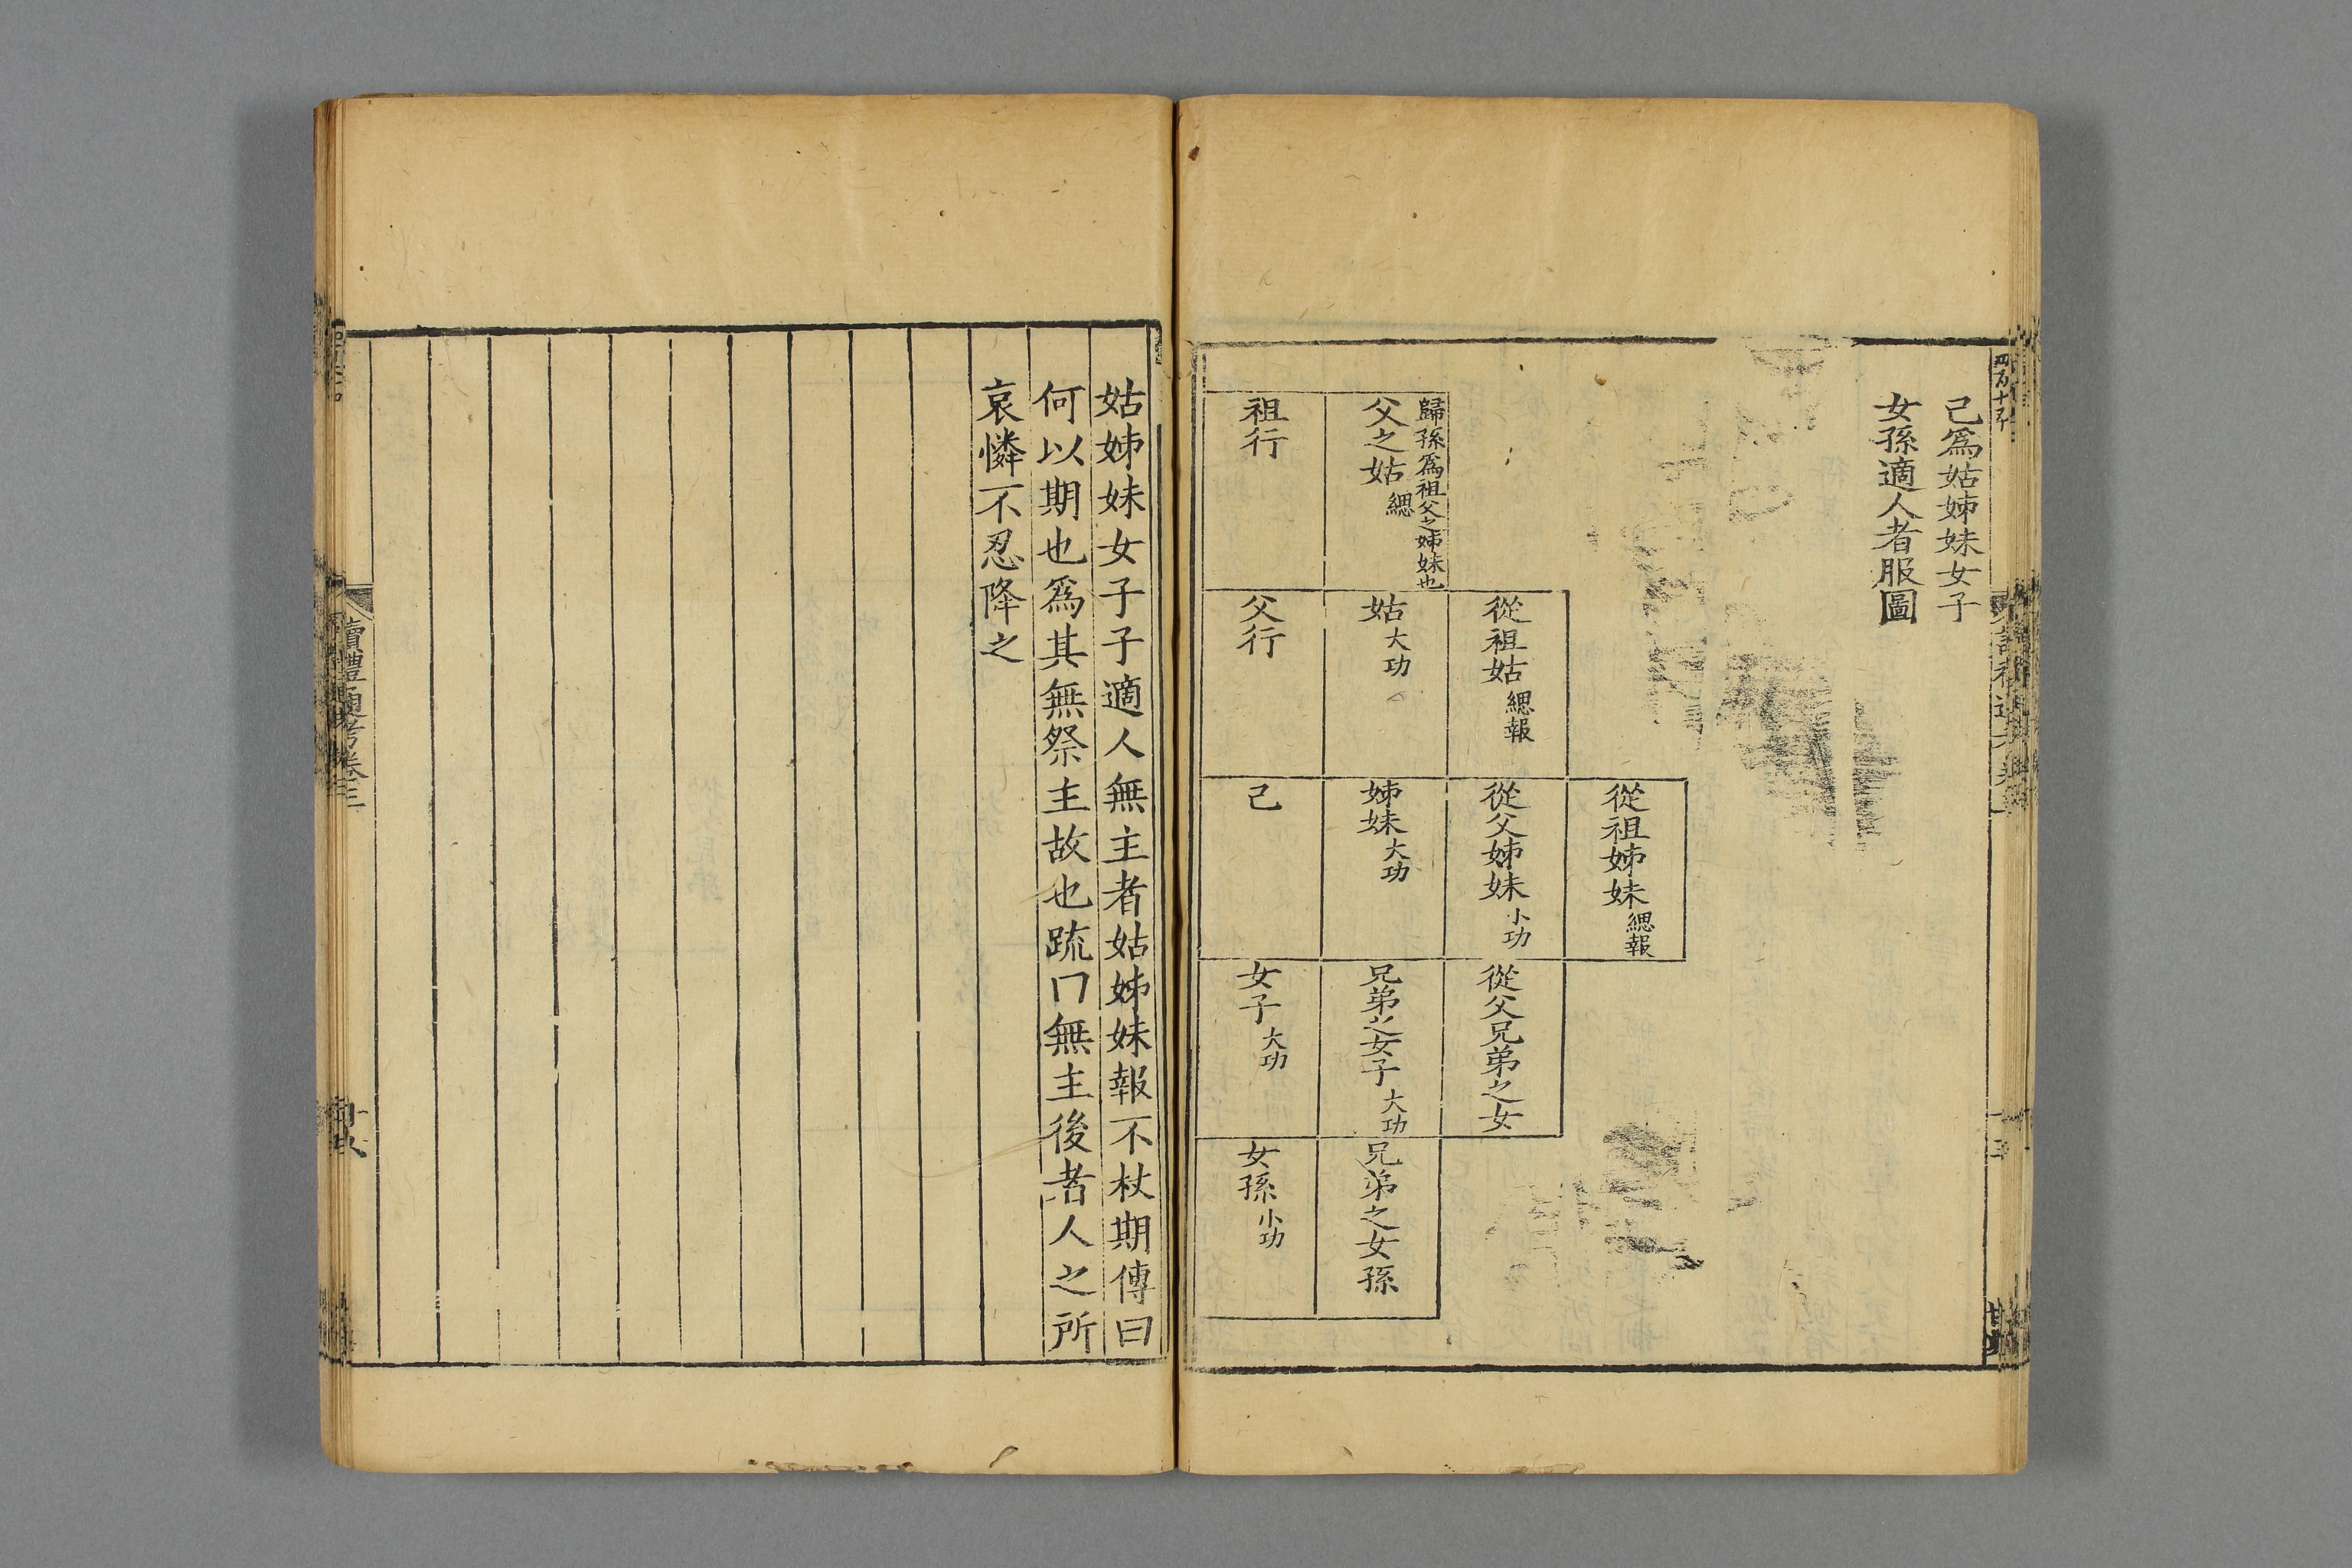 己爲姑姊妹女子
女孫適人者服圖
從祖姊妹緦報
從祖姑緦報
從父姊妹小功
從父兄弟之女
歸孫爲祖父之姊妹也
父之姑緦
姑大功
姊妹大功
兄弟之女子大功
兄弟之女孫
祖行
父行
己
女子大功
女孫小功
姑姊妹女子子適人無主者姑姊妹報不杖期傳曰
何以期也爲其無祭主故也疏曰無主後者人之所
哀憐不忍降之
讀禮通考卷三